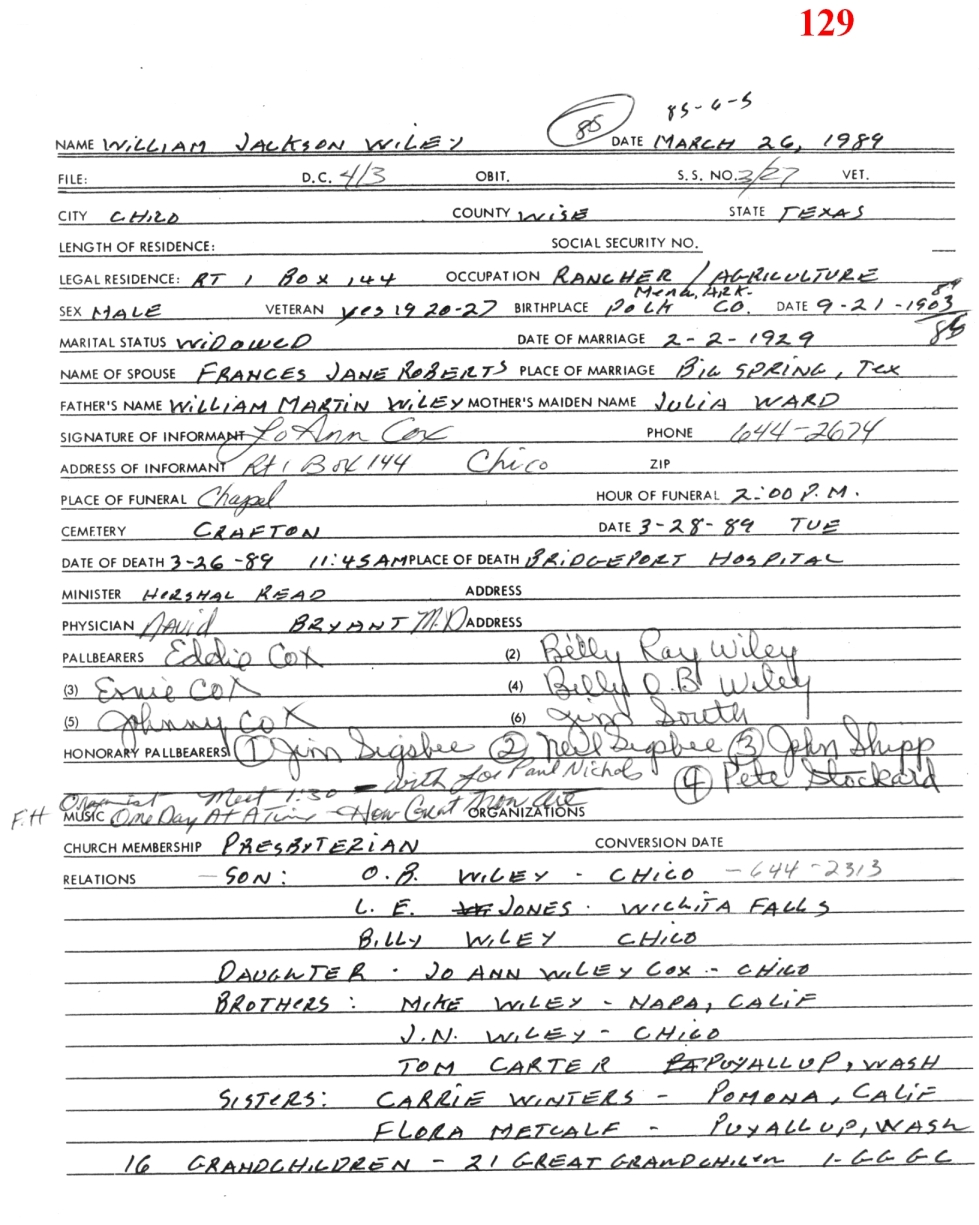 129
85-6-5
NAME WILLIAM JACKSON WILEY 85 DATE MARCH 26, 1989
FILE: D.C. 4/3 OBIT. S. S. NO. 3/27 VET.
CITY CHICO COUNTY WISE STATE TEXAS
LENGTH OF RESIDENCE: SOCIAL SECURITY NO.
LEGAL RESIDENCE: RT 1 BOX 144 OCCUPATION RANCHER / AGRICULTURE
Mena, ARK. 89
SEX MALE VETERAN yes 1920-27 BIRTHPLACE POLK CO. DATE 9-21-1903
MARITAL STATUS WIDOWED DATE OF MARRIAGE 2-2-1929
NAME OF SPOUSE FRANCES JANE ROBERTS PLACE OF MARRIAGE BIG SPRING, Tex
FATHER'S NAME WILLIAM MARTIN WILEY MOTHER'S MAIDEN NAME JULIA WARD
SIGNATURE OF INFORMANT Jo Ann Cox PHONE 644-2674
ADDRESS OF INFORMANT Rt 1 Box 144 Chico ZIP
PLACE OF FUNERAL Chapel HOUR OF FUNERAL 2:00 P.M.
CEMETERY CRAFTON DATE 3-28-89 TUE
DATE OF DEATH 3-26-89 11:45 AM PLACE OF DEATH BRIDGEPORT HOSPITAL
MINISTER HERSHAL READ ADDRESS
PHYSICIAN DAVID BRYANT M.D ADDRESS
PALLBEARERS Eddie Cox (2) Billy Ray Wiley
(3) Ernie Cox (4) Billy O.B. Wiley
(5) Johnny Cox (6) Jim South
HONORARY PALLBEARERS 1 Jim Sigsbee 2 Neil Sigsbee 3 John Shipp
4 Pete Stockard
Organist Meet 1:30 - with Joe Paul Nichols
F.H MUSIC One Day At A Time - How Great Thou Art ORGANIZATIONS
CHURCH MEMBERSHIP PRESBYTERIAN CONVERSION DATE
RELATIONS - SON: O.B. WILEY - CHICO - 644-2313
L. E. JONES - WICHITA FALLS
BILLY WILEY CHICO
DAUGHTER - JO ANN WILEY COX - CHICO
BROTHERS: MIKE WILEY - NAPA, CALIF
J.N. WILEY - CHICO
TOM CARTER PUYALLUP, WASH
SISTERS: CARRIE WINTERS - POMONA, CALIF
FLORA METCALF - PUYALLUP, WASH
16 GRANDCHILDREN - 21 GREAT GRANDCHILREN 1-GGGC